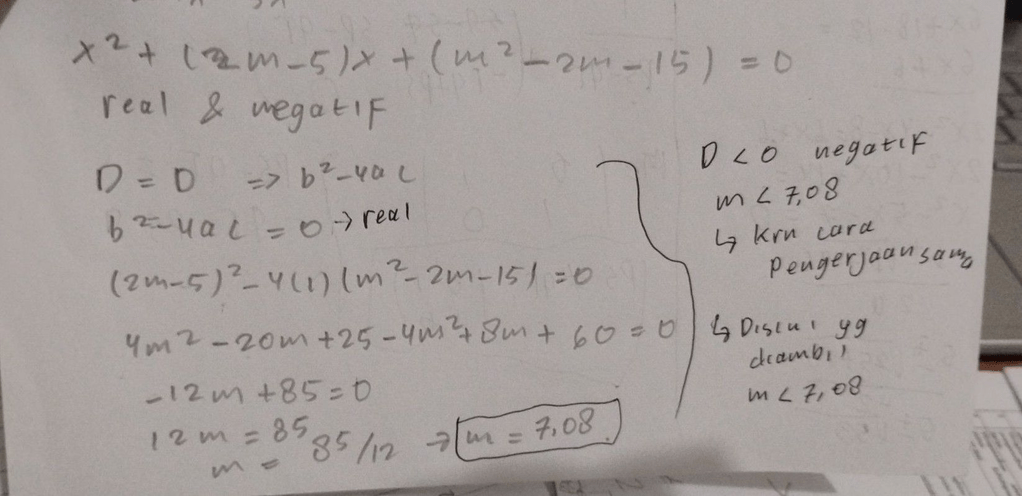 x² + (2m-5)x + (m² - 2m - 15) = 0
real & negatif
D = 0 => b²-4ac
b²-4ac = 0 → real
(2m-5)² - 4(1)(m² - 2m - 15) = 0
4m² - 20m + 25 - 4m² + 8m + 60 = 0
-12m + 85 = 0
12m = 85
m = 85/12 → m = 7,08
D < 0 negatif
m < 7,08
↳ krn cara
pengerjaan sama
↳ Disini yg
diambil
m < 7,08